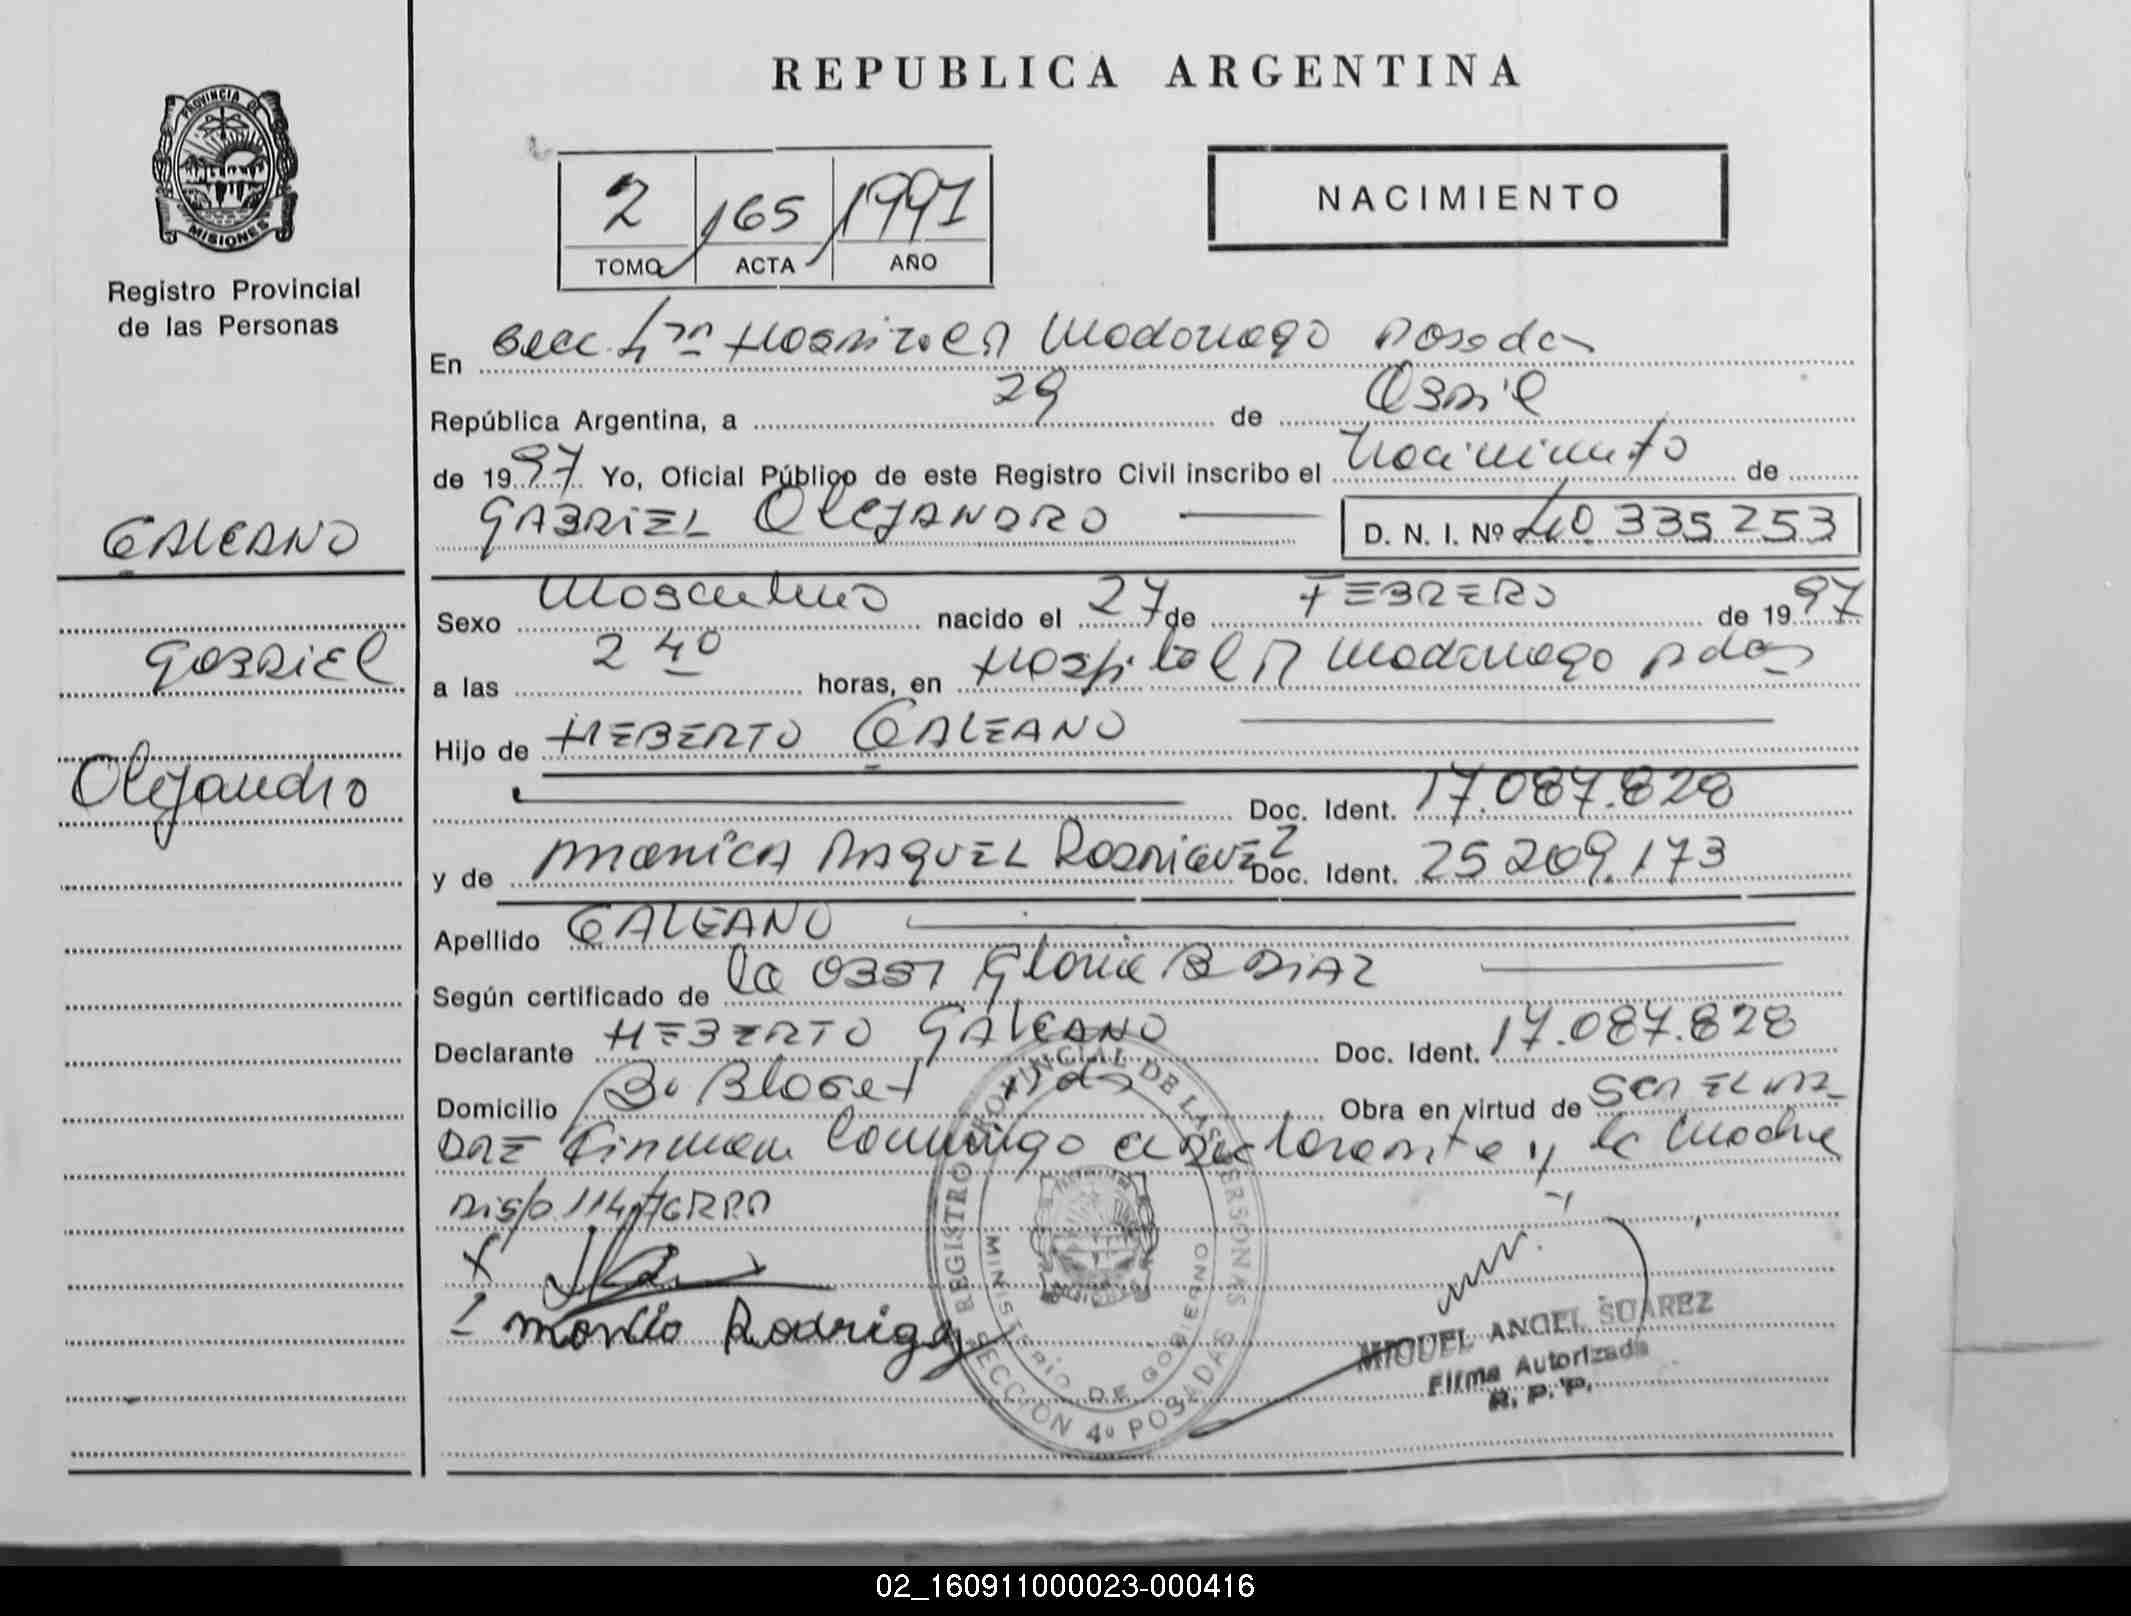 REPUBLICA ARGENTINA
PROVINCIA DE
MISIONES
Registro Provincial
de las Personas
2 165 1997
TOMO ACTA AÑO
NACIMIENTO
En Secc. 4ta Hospital R Madariaga Posadas
República Argentina, a 29 de Abril
de 1997 Yo, Oficial Público de este Registro Civil inscribo el Nacimiento de
GABRIEL ALEJANDRO D. N. I. Nº 40.335.253
GALEANO
Gabriel
Alejandro
Sexo Masculino nacido el 27 de FEBRERO de 1997
a las 2 40 horas, en Hospital R Madariaga Pdas
Hijo de HEBERTO GALEANO
Doc. Ident. 17.087.828
y de MONICA RAQUEL RODRIGUEZ Doc. Ident. 25.209.173
Apellido GALEANO
Según certificado de la Obst Gloria B DIAZ
Declarante HEBERTO GALEANO Doc. Ident. 17.087.828
Domicilio Bo Pdas Obra en virtud de SER EL PA
DRE Firman conmigo el declarante y la Madre
Disp. 114/76 RPP
X
Monica Rodrigez
REGISTRO PROVINCIAL DE LAS PERSONAS
MINISTERIO DE GOBIERNO
SECCION 4º POSADAS
MIGUEL ANGEL SUAREZ
Firma Autorizada
R. P. P.
02_160911000023-000416